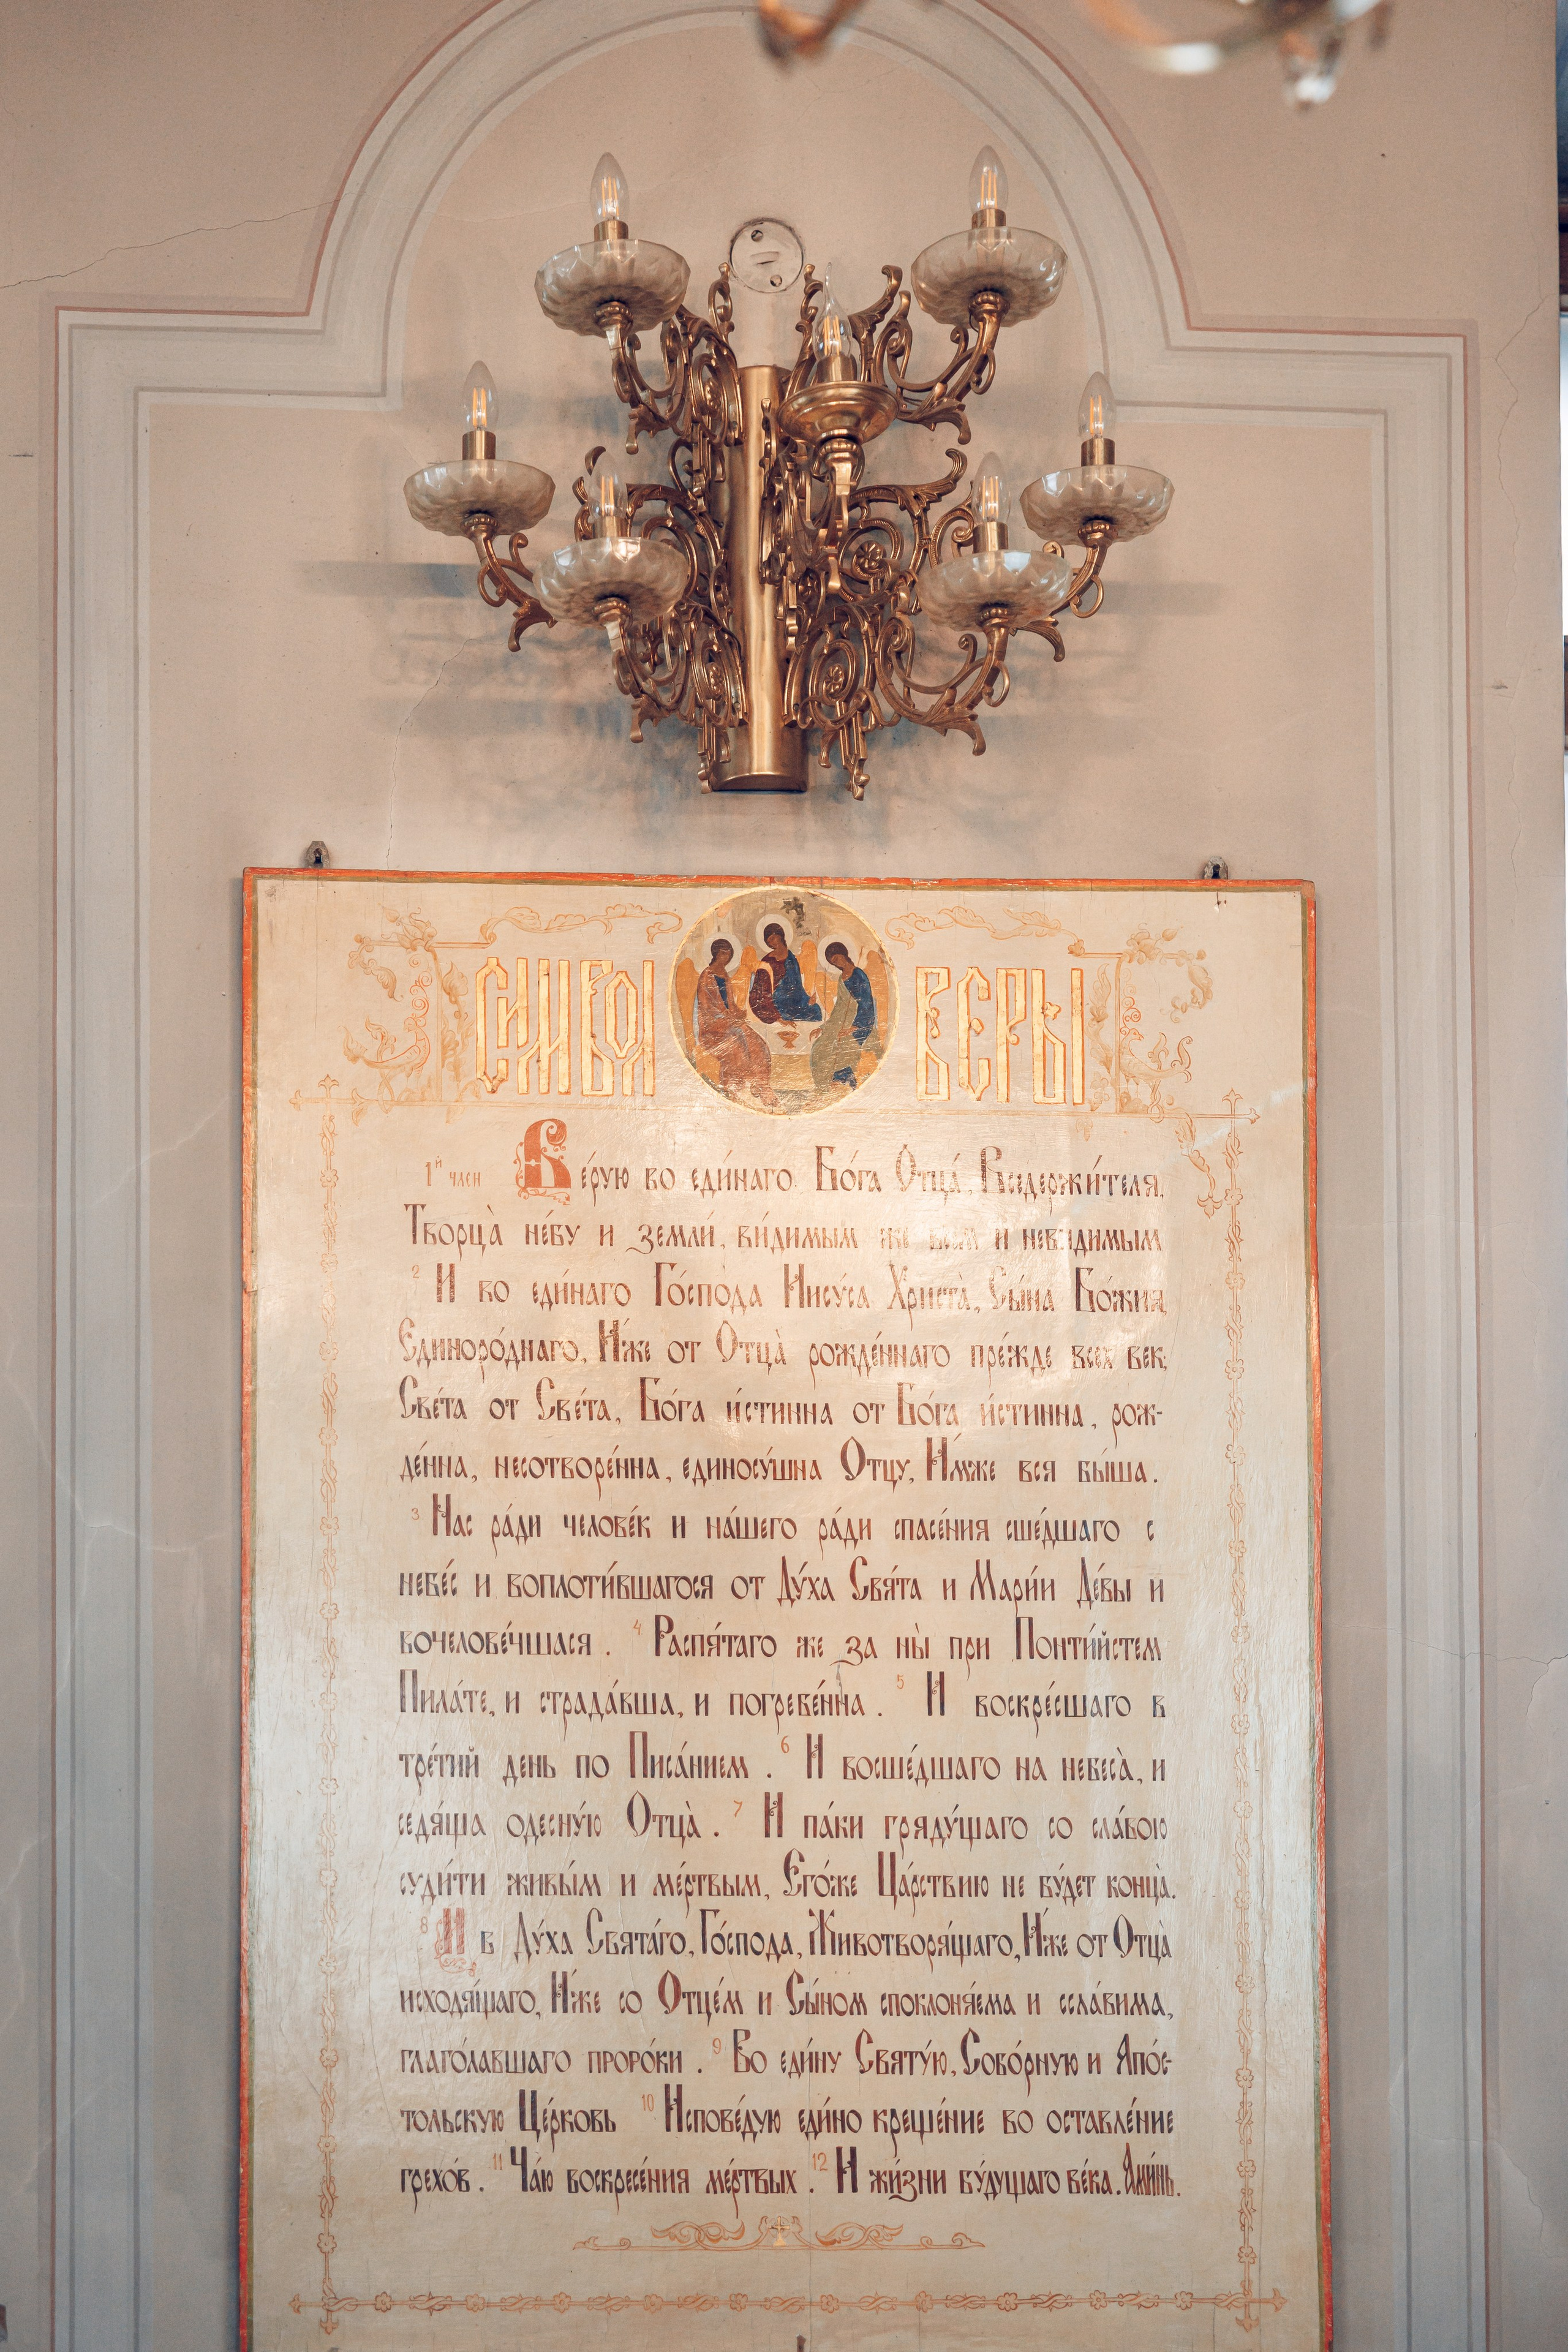 СИМВОЛ ВЕРЫ
1й член Ве́рую во еди́наго Бо́га Отца́, Вседержи́теля,
Творца̀ не́бу и земли́, ви́димым же всем и неви́димым
2 И во еди́наго Го́спода Иису́са Христа̀, Сы́на Бо́жия,
Единоро́днаго, И́же от Отца̀ рожде́ннаго пре́жде всех век;
Све́та от Све́та, Бо́га и́стинна от Бо́га и́стинна, рож-
де́нна, несотворе́нна, единосу́щна Отцу, И́мже вся бы́ша.
3 Нас ра́ди челове́к и на́шего ра́ди спасе́ния сше́дшаго с
небе́с и воплоти́вшагося от Ду́ха Свя́та и Мари́и Де́вы и
вочелове́чшася. 4 Распя́таго же за ны̀ при Понти́йстем
Пила́те, и страда́вша, и погребе́нна. 5 И воскре́сшаго в
тре́тий день по Писа́нием. 6 И восше́дшаго на небеса̀, и
седя́ща одесну́ю Отца̀. 7 И па́ки гряду́щаго со сла́вою
суди́ти живы́м и ме́ртвым, Его́же Ца́рствию не бу́дет конца̀.
8 И в Ду́ха Свята́го, Го́спода, Животворя́щаго, И́же от Отца̀
исходя́щаго, И́же со Отце́м и Сы́ном споклоня́ема и ссла́вима,
глаго́лавшаго проро́ки. 9 Во еди́ну Святу́ю, Собо́рную и Апо́с-
тольскую Це́рковь 10 Испове́дую еди́но креще́ние во оставле́ние
грехо́в. 11 Ча́ю воскресе́ния ме́ртвых. 12 И жи́зни бу́дущаго ве́ка. Ами́нь.